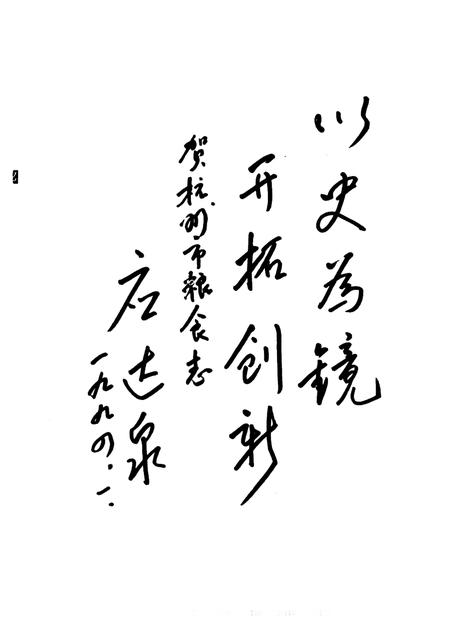 以史为镜
开拓创新
贺杭州市粮食志
应达泉
一九九四.一.